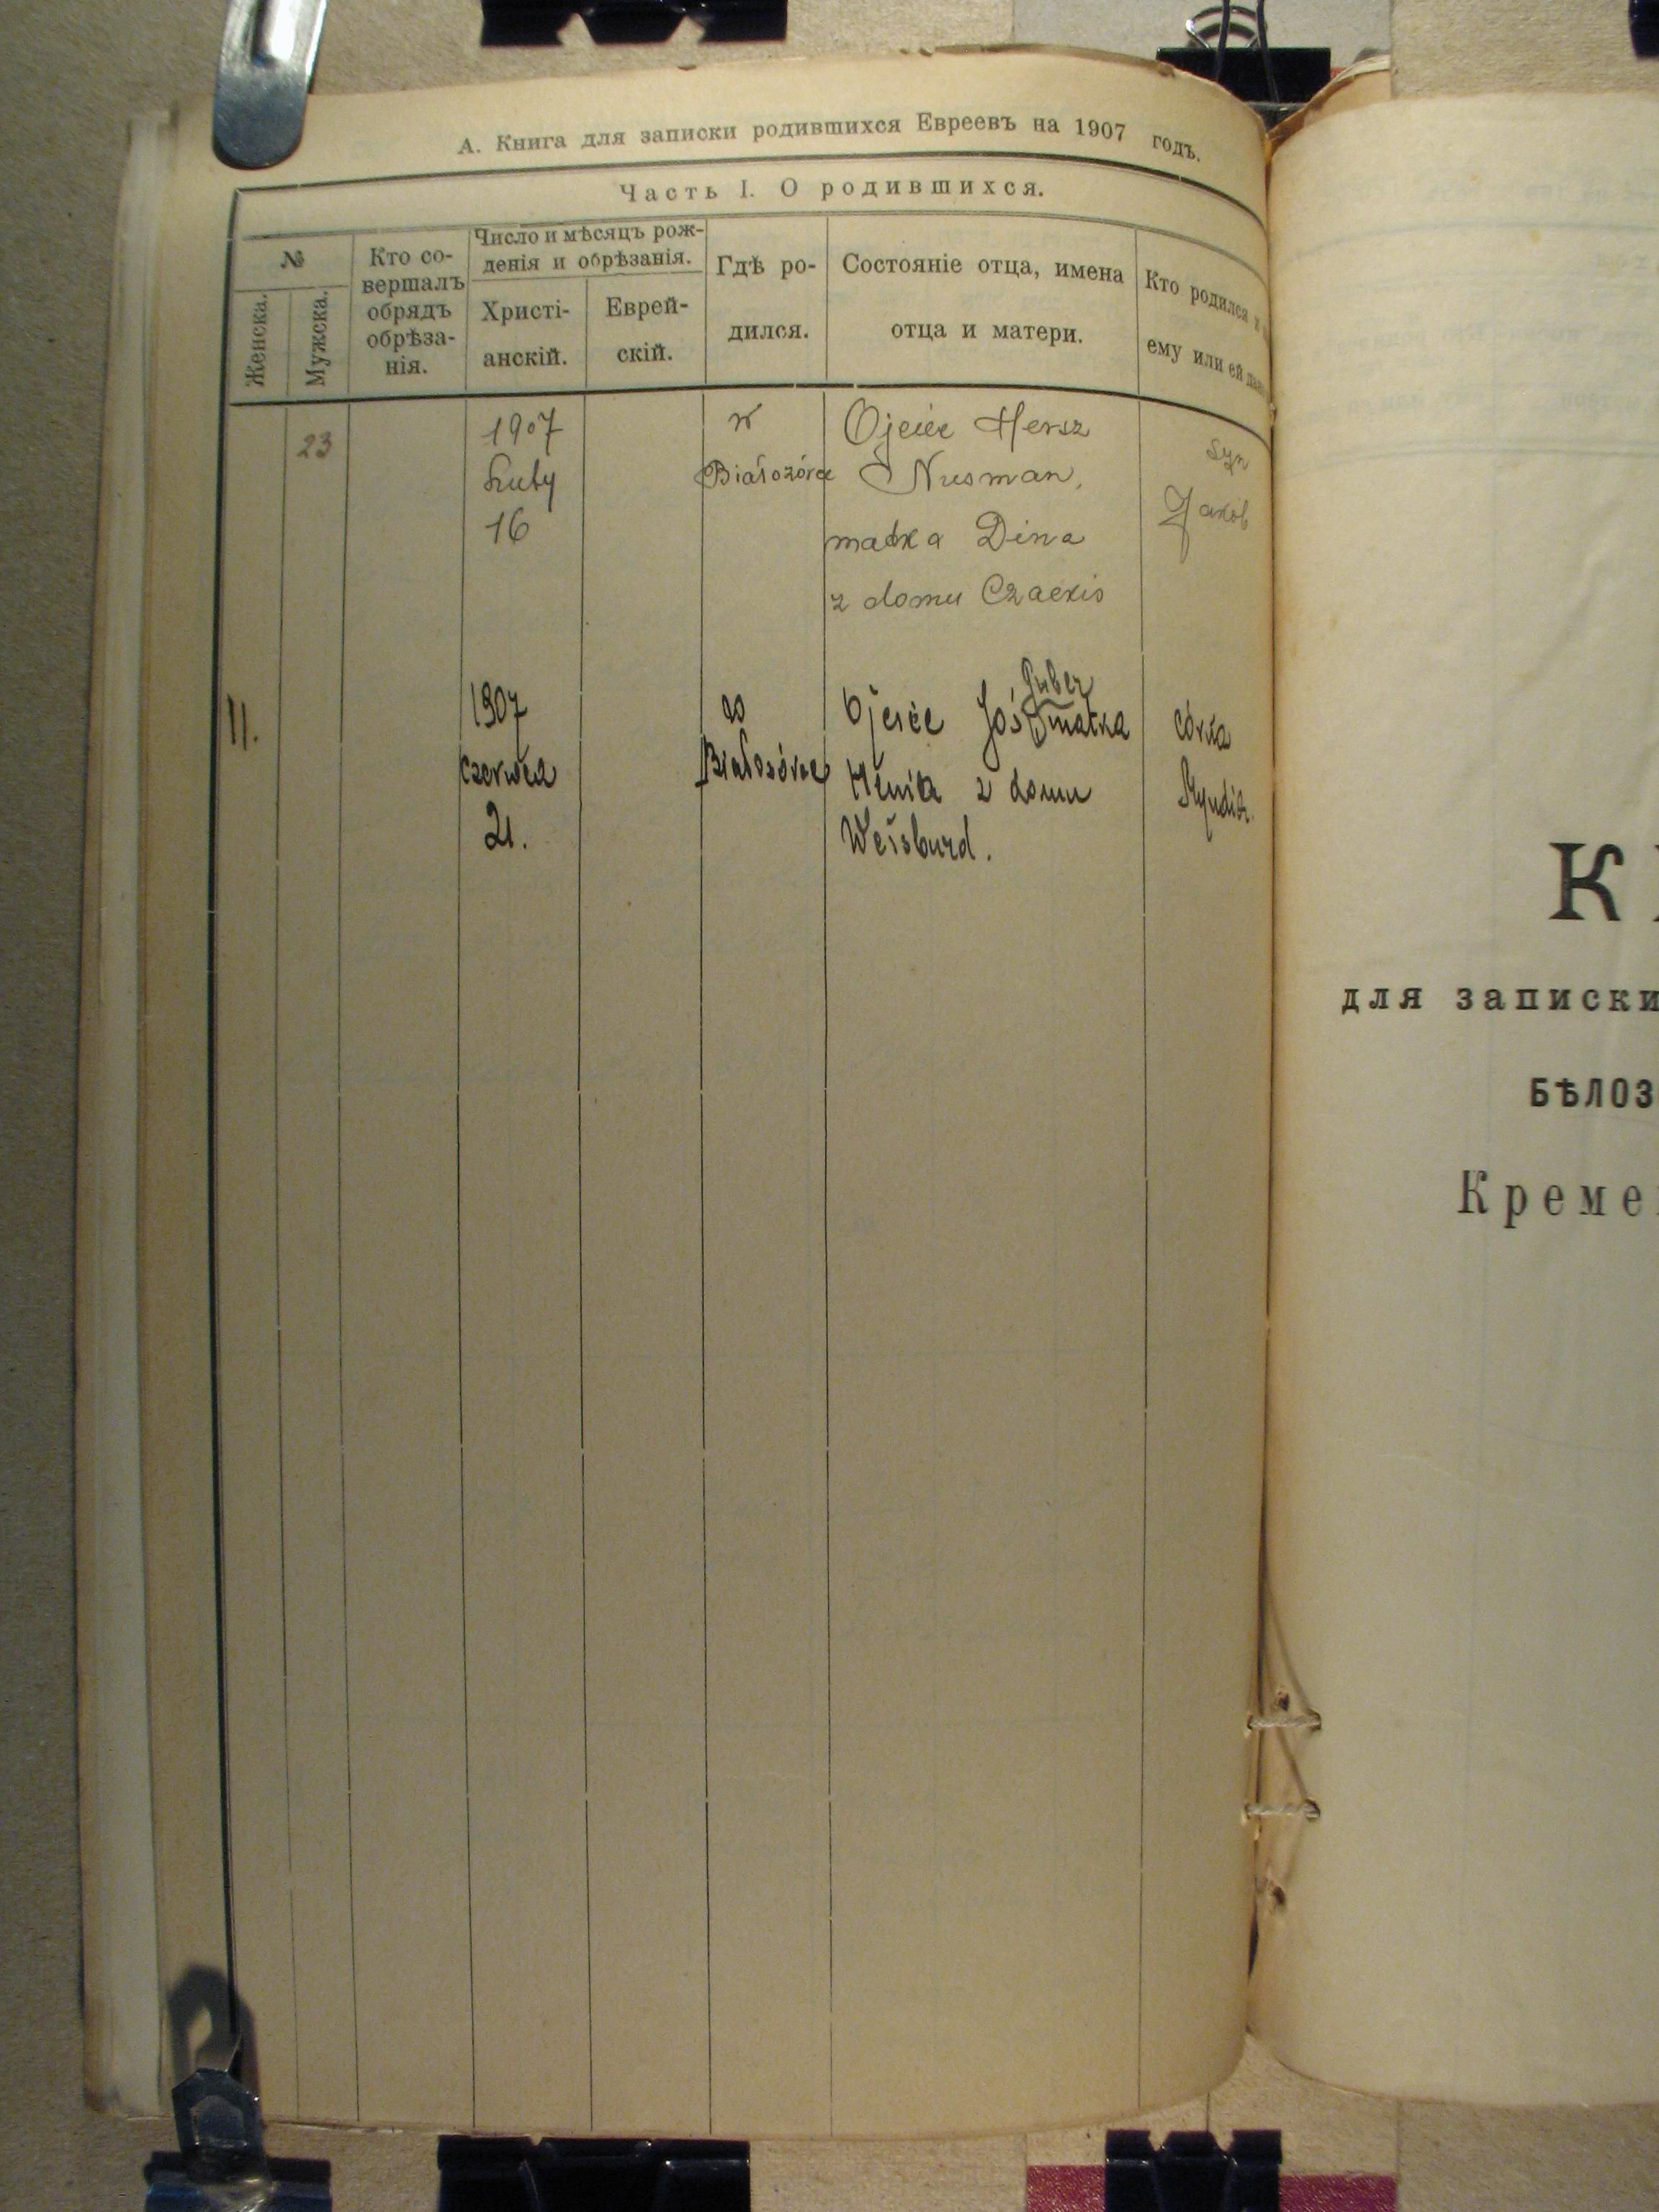 А. Книга для записки родившихся Евреевъ на 1907 годъ.
Часть I. О родившихся.
№
Женска.
Мужска.
Кто со-
вершалъ
обрядъ
обрѣза-
нія.
Число и мѣсяцъ рож-
денія и обрѣзанія.
Христі-
анскій.
Еврей-
скій.
Гдѣ ро-
дился.
Состояніе отца, имена
отца и матери.
Кто родился и
ему или ей
23
1907
Luty
16
w
Białozórce
Ojciec Hersz
Nusman,
matka Dina
z domu
syn
Jakób
11.
1907
czerwca
21.
w
Białozórce
Ojciec Joś Huber matka
Henia z domu
Weisburd.
córka
К
для записки
БѢЛОЗ
Креме